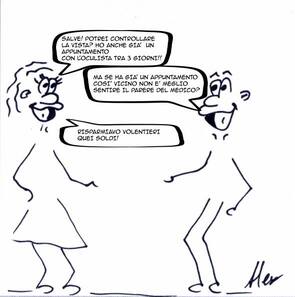 SALVE! POTREI CONTROLLARE
LA VISTA? HO ANCHE GIA' UN
APPUNTAMENTO
CON L'OCULISTA TRA 3 GIORNI!!
MA SE HA GIA' UN APPUNTAMENTO
COSI' VICINO NON E' MEGLIO
SENTIRE IL PARERE DEL MEDICO?
RISPARMIAVO VOLENTIERI
QUEI SOLDI!